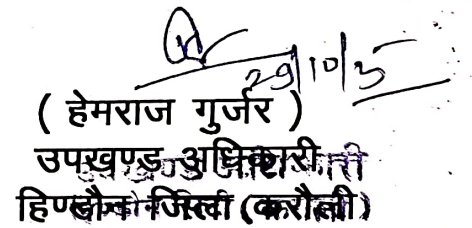 29/10/5
( हेमराज गुर्जर )
उपखण्ड अधिकारी
हिण्डौन जिला (करौली)